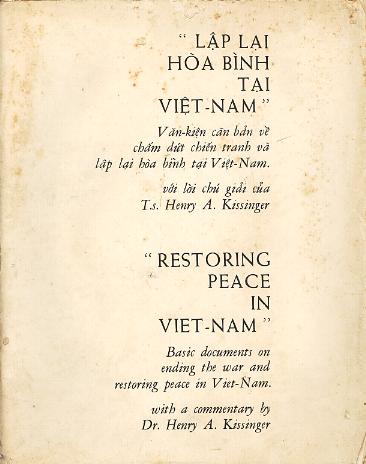 “ LẬP LẠI
HÒA BÌNH
TẠI
VIỆT-NAM ”
Văn-kiện căn bản về
chấm dứt chiến tranh và
lập lại hòa bình tại Việt-Nam.
với lời chú giải của
T.s. Henry A. Kissinger
“ RESTORING
PEACE
IN
VIET-NAM ”
Basic documents on
ending the war and
restoring peace in Viet-Nam.
with a commentary by
Dr. Henry A. Kissinger